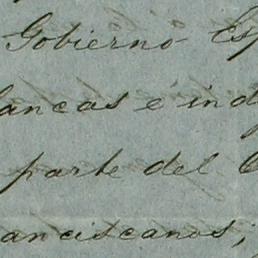 Gobierno Esp
lancas é ind
parte del
anciscanos,